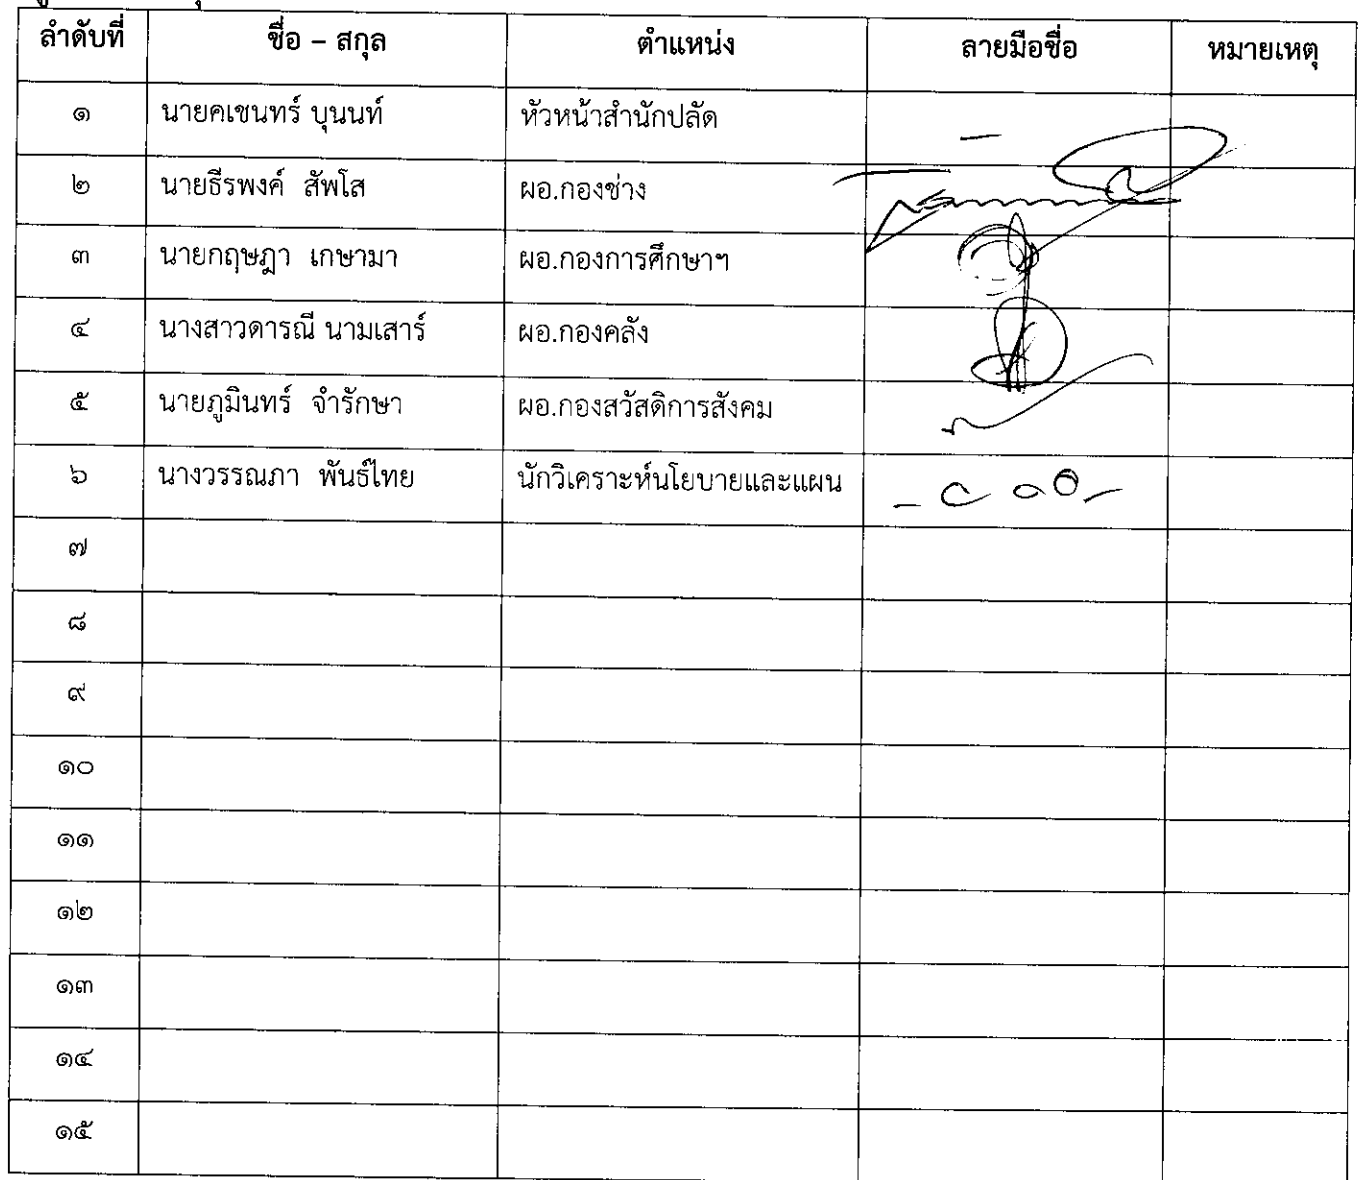 ลำดับที่ ชื่อ – สกุล ตำแหน่ง ลายมือชื่อ หมายเหตุ
๑ นายคเชนทร์ บุนนท์ หัวหน้าสำนักปลัด
๒ นายธีรพงค์ สัพโส ผอ.กองช่าง
๓ นายกฤษฎา เกษามา ผอ.กองการศึกษาฯ
๔ นางสาวดารณี นามเสาร์ ผอ.กองคลัง
๕ นายภูมินทร์ จำรักษา ผอ.กองสวัสดิการสังคม
๖ นางวรรณภา พันธ์ไทย นักวิเคราะห์นโยบายและแผน
๗
๘
๙
๑๐
๑๑
๑๒
๑๓
๑๔
๑๕